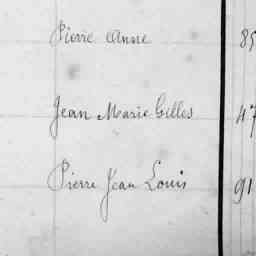 Pierre Anne 85
Jean Marie Gilles 47
Pierre Jean Louis 91